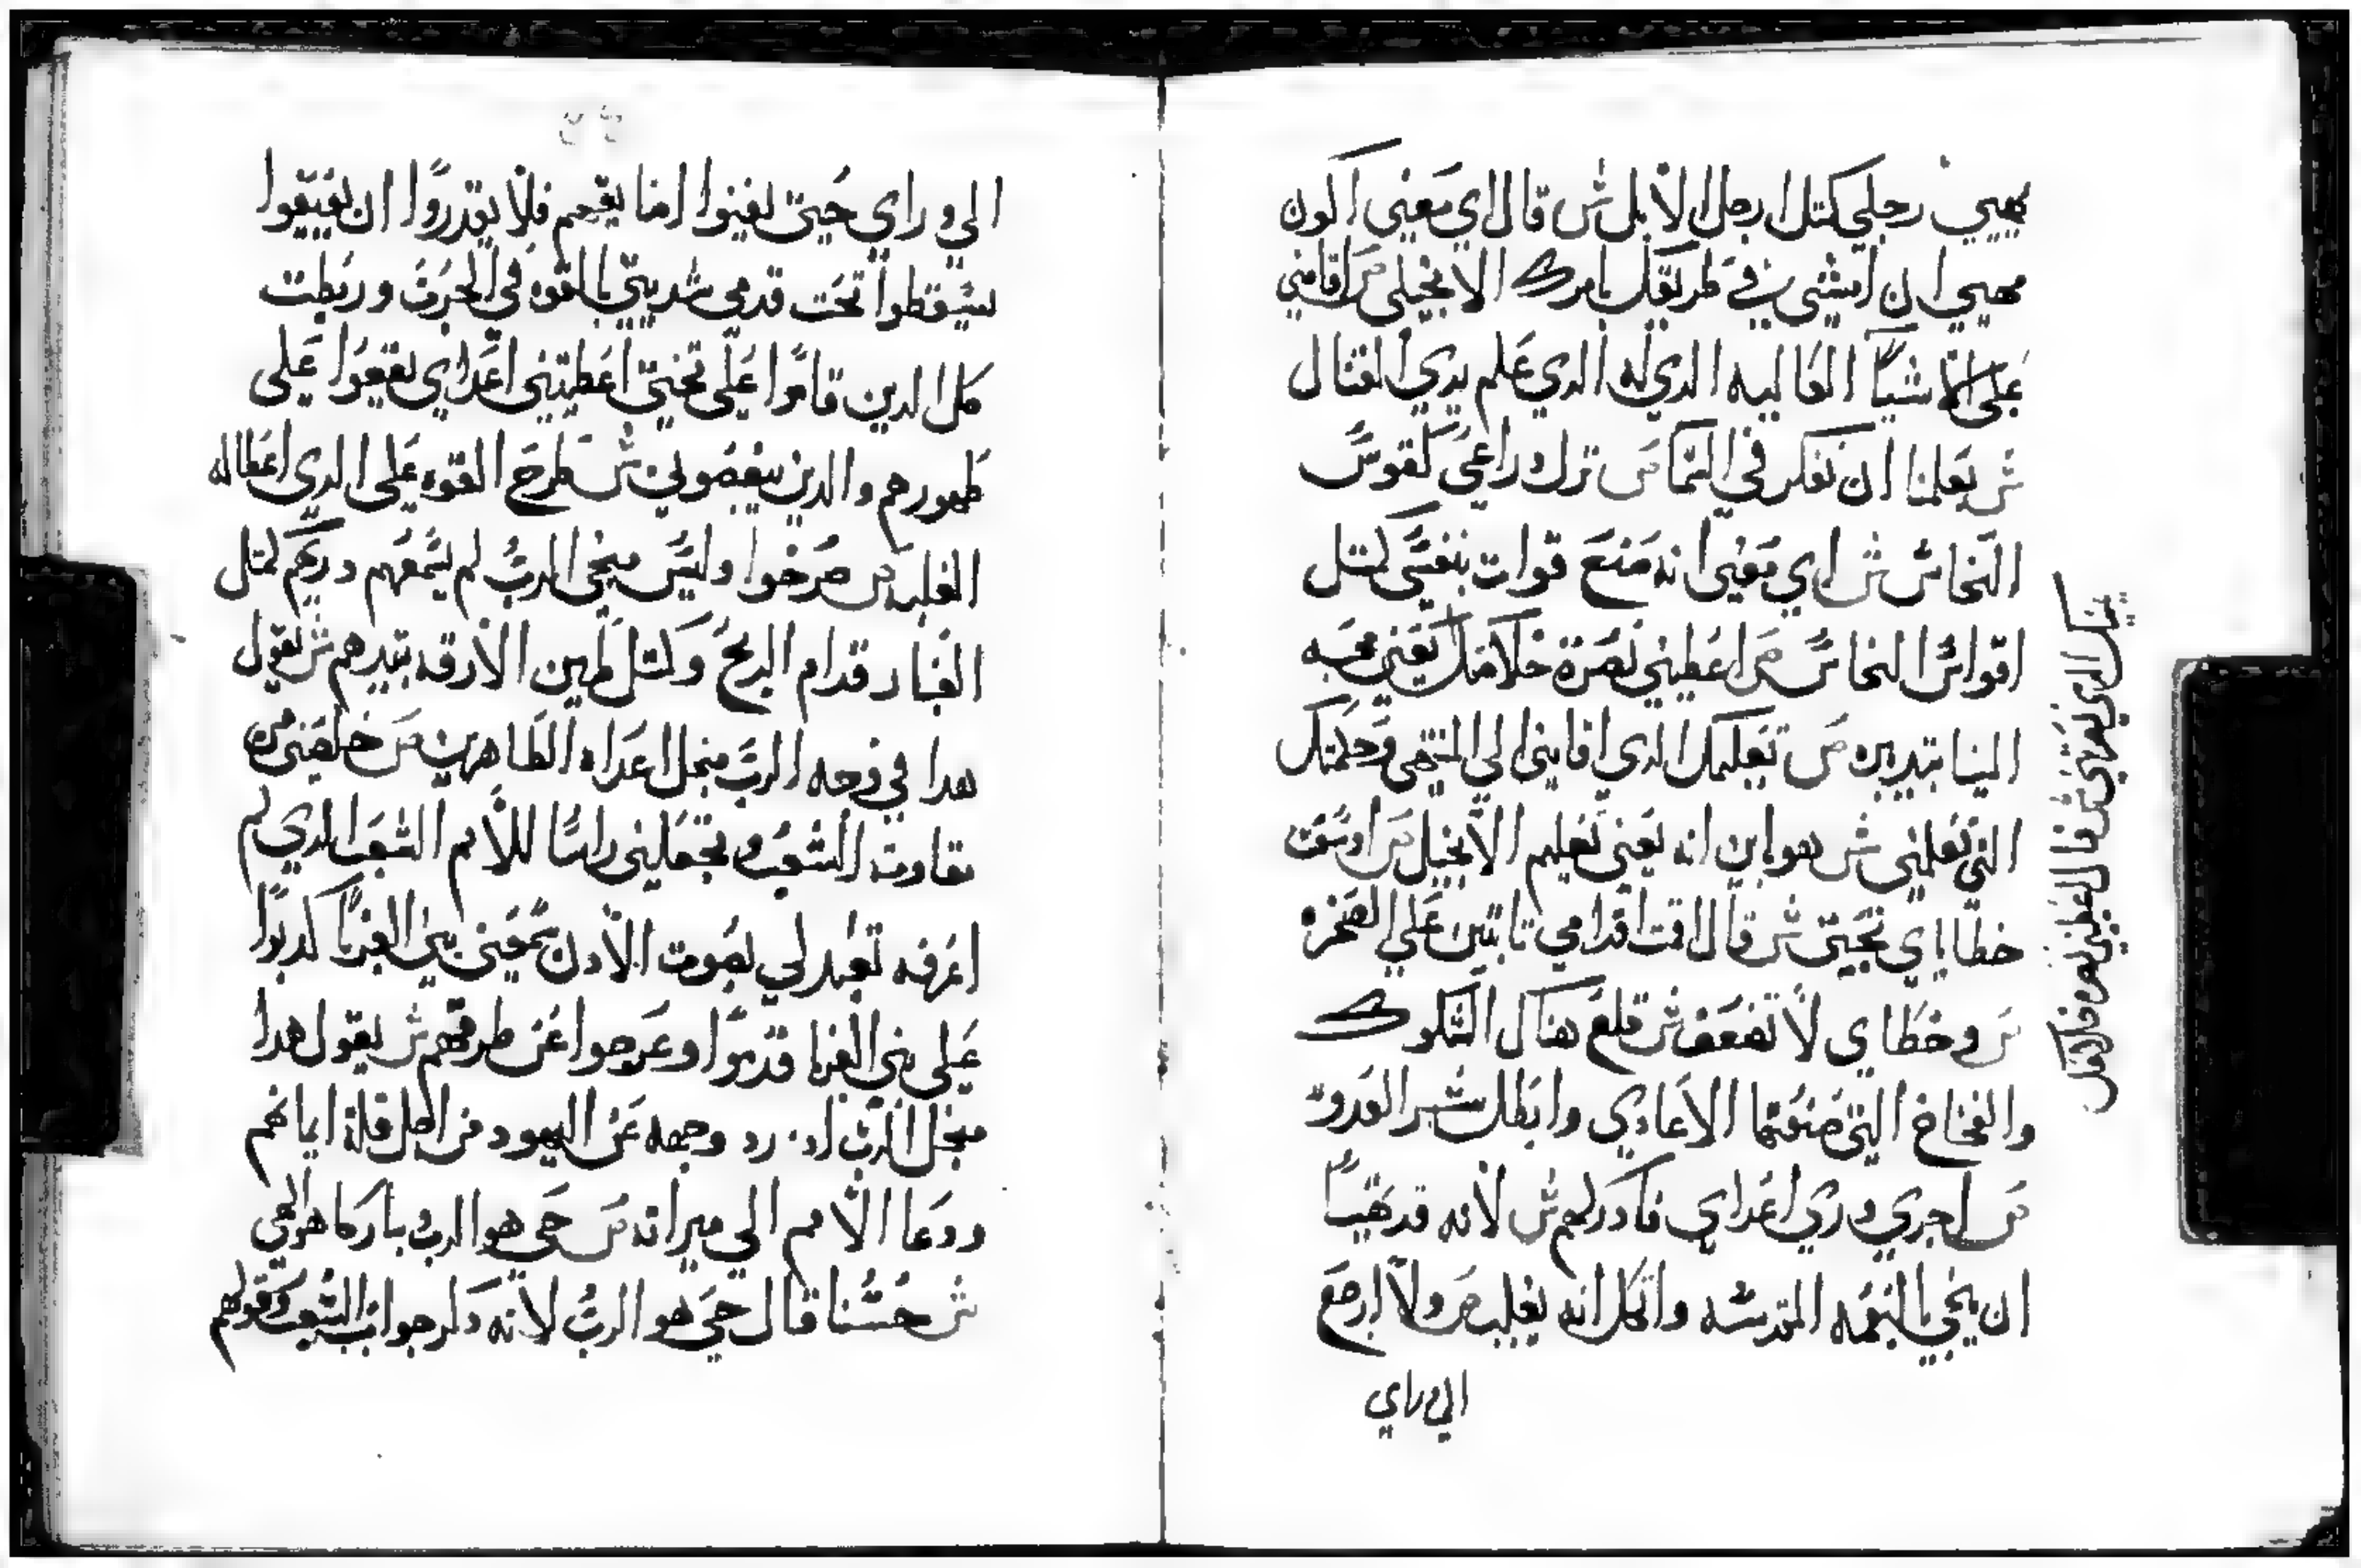 يهيي رجلي كمثل ارجل الابل ش قال اي معني اكون
مهيي ان امشي في طريقك بامرك الانجيلي ص اقامني
علي الاشيا العاليه الذي له الدي علم يدي القتال
ش يعلمنا ان نفكر في السما ص ترك دراعي كقوس
النحاس ش اي معني انه منع قوات بنفسي كمثل
اقواس النحاس ص اعطيني نصرة خلاصك يعني محبه
البنا بتدبيره ص تعليمك الدي اقامني الي المنتهي وحكمتك
التي تعلمني ش هو ابن انه يعني تعليم الانجيل ص اوسعت
خطااي تحيتي ش قال اقت اقدامي تابتين علي الصخره
ص وخطاي لا تضعف ش قلع هناك الشكوك
والفخاخ التي صنعتها الاعادي وابطلت شر العدو
ص اجري وري اعداي فادركهم ش لانه قد تهيا
ان ينجي بالنعمه المقدسه واتكل انه يغلب ص ولا ارجع
الي وراي
يمينك الدي نصرتني ش قال اعطيني نصره
الي وراي حيتي يفنوا امنا يقحم فلا يقدروا ان يفيقوا
سيقطوا تحت قدمي شديتي بالقوه في الحرب وربطت
كل الدين قاموا علي تحتي اعطيتني اعداي يقفوا علي
ظهورهم والدين يبغضوني ش طرح القوه علي الدي اعطا له
الغلبه ص صرخوا وليس منجي الرب لم يسمعهم دريهم كمثل
الغبار قدام الريح وكمثل طين الازقه بتيدهم ش يقول
هدا في وجه الرب من جل اعداه الظاهرين ص خلصني من
مقاومة الشعب وتجعلني راسا للامم الشعب الدي لم
اعرفه تعبد لي بصوت الادن سمعني بني الغربا كدبوا
علي بني الغربا قدموا وعرجوا عن طرقهم ش يقول هدا
منجل الرب اد رد وجهه عن اليهود من اجل قلة ايمانهم
ودعا الامم الي ميراته ص حي هو الرب وبارك هو الهي
ش حسنا قال حي هو الرب لانه دكر جواب الشعب وقولهم